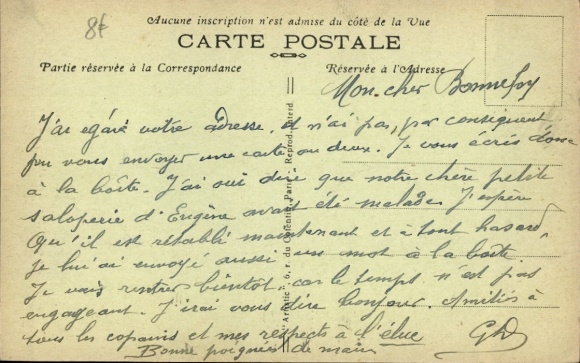 8f
Aucune inscription n'est admise du côté de la Vue
CARTE POSTALE
Partie réservée à la Correspondance
Réservée à l'Adresse
Mon cher Bonnefoy
J'ai égaré votre adresse, et n'ai pas, par conséquent
pu vous envoyer une carte ou deux. Je vous écris donc
à la boîte. J'ai ouï dire que notre chère petite
saloperie d'Eugène avait été malade. J'espère
Qu'il est rétabli maintenant et à tout hasard,
je lui ai envoyé aussi un mot à la boîte.
Je vais rentrer bientôt, car le temps n'est pas
engageant. J'irai vous dire bonjour. Amitiés à
tous les copains et mes respects à l'élue
Bonne poignée de main
"Artistic", 6, r. du Paris. Reprod. interd.